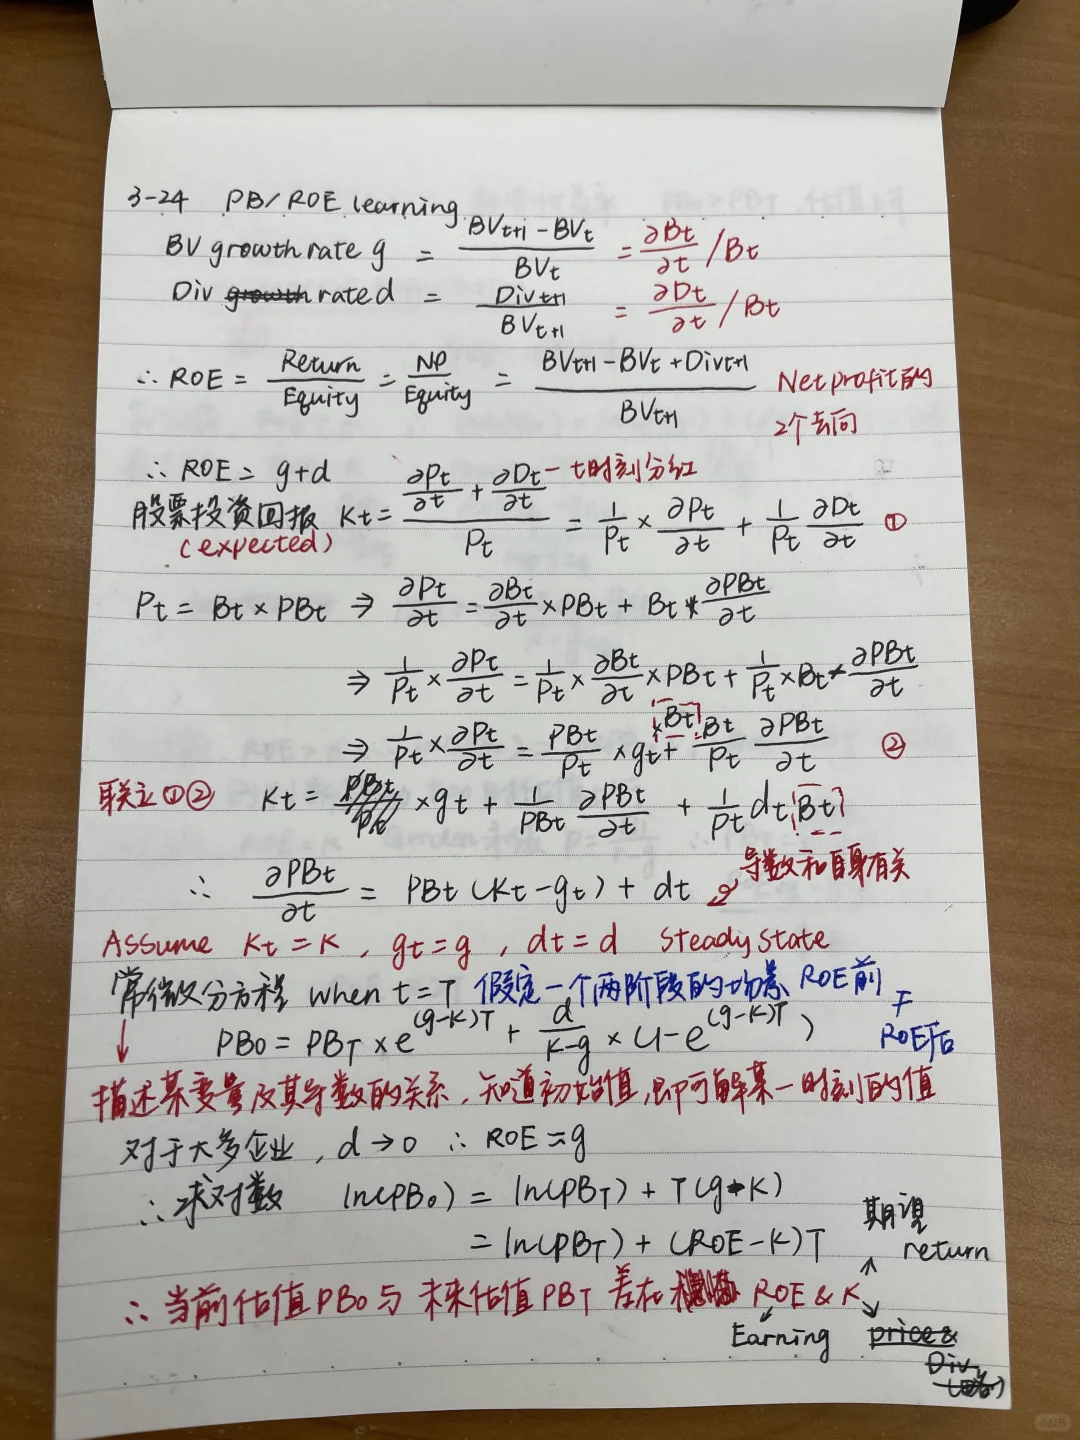 3-24 PB/ROE learning
BV growth rate g = (BVt+1 - BVt)/BVt = ∂Bt/∂t / Bt
Div growth rate d = Divt+1/BVt+1 = ∂Dt/∂t / Bt
∴ ROE = Return/Equity = NP/Equity = (BVt+1 - BVt + Divt+1)/BVt+1 Net profit的
2个去向
∴ ROE = g+d
股票投资回报 Kt = (∂Pt/∂t + ∂Dt/∂t)/Pt = 1/Pt × ∂Pt/∂t + 1/Pt ∂Dt/∂t ①
t时刻分红
(expected)
Pt = Bt × PBt ⇒ ∂Pt/∂t = ∂Bt/∂t × PBt + Bt * ∂PBt/∂t
⇒ 1/Pt × ∂Pt/∂t = 1/Pt × ∂Bt/∂t × PBt + 1/Pt × Bt * ∂PBt/∂t
⇒ 1/Pt × ∂Pt/∂t = PBt/Pt × gt ×Bt + Bt/Pt ∂PBt/∂t ②
联立①② Kt = PBt/Pt × gt + 1/PBt ∂PBt/∂t + 1/Pt dt Bt
∴ ∂PBt/∂t = PBt (Kt - gt) + dt 导数和自身有关
Assume Kt = K, gt = g, dt = d Steady State
常微分方程 when t = T 假定一个两阶段的场景 ROE前
≠
ROE后
PB0 = PBT × e^(g-K)T + d/(K-g) × (1-e^(g-K)T)
描述某变量及其导数的关系,知道初始值,即可解某一时刻的值
对于大多企业, d→0 ∴ ROE ≈ g
∴ 求对数 ln(PB0) = ln(PBT) + T(g-K)
= ln(PBT) + (ROE-K)T
期望
return
∴ 当前估值PB0与未来估值PBT差在 ROE & K
Earning price &
Div